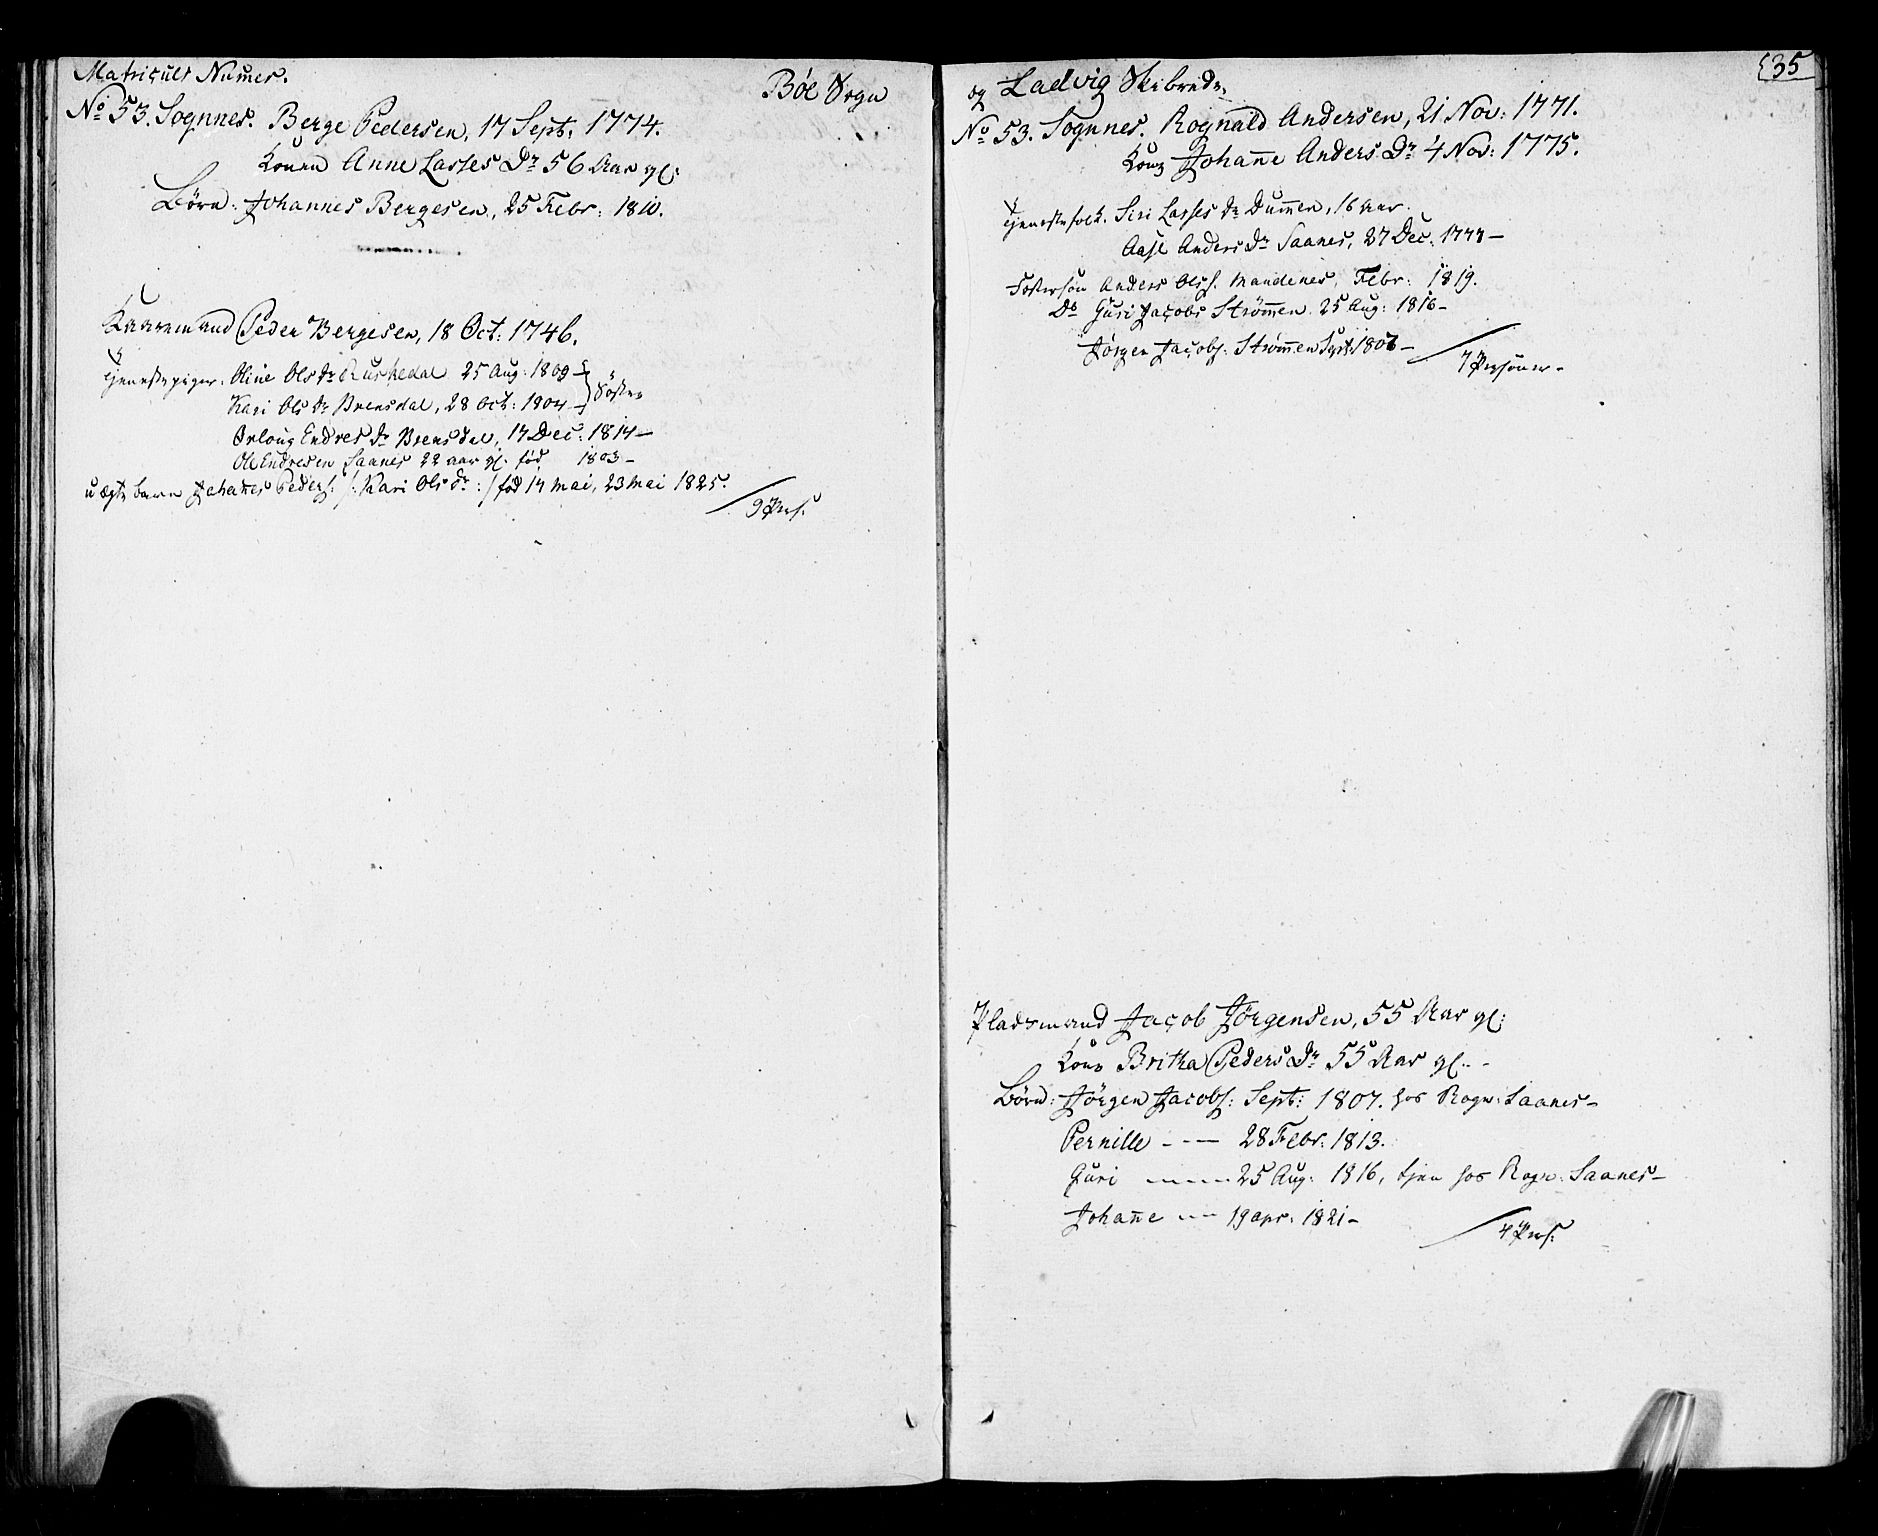 Matricult Numer.
Bøe Sogn
No 53. Sognnes. Berge Pedersen, 17 Sept. 1774.
Konen Anne Lasses Dr 56 Aar gl:
Børn: Johannes Bergesen, 25 Febr: 1810.
Kaaremand Peder Bergesen, 18 Oct: 1746.
Tjenestepiger: Oline Ols dr 25 Aug: 1809 –
Kari Ols dr Brensdal, 28 Oct: 1804 –
Søstre
Endres dr Brensdal, 14 Dec: 1814 –
Ole Endresen Saanes 22 aar gl. fød 1803 –
uægte barn Johañes Peders: /: Kari Ols dr :/ fød 14 mai, 23 mai 1825.
9 Pers.
535
og Ladvig Skibrede.
No 53. Sognnes. Rognald Andersen, 21 Nov: 1771.
Kone Johañe Anders Dr 4 Nov: 1775.
Tjenestefolk. Siri Lasses dr Dum̃en, 16 Aar.
Anders dr Saanes, 27 Dec: 1777 –
Fostersøn Anders Olss. Mandenes, Febr: 1819.
Do Guri Jacobs Strøm̃en 25 Aug: 1816 –
Jørgen Jacobs: Strøm̃en Sept: 1807 –
7 Personer –
Pladsmand Jacob Jørgensen, 55 Aar gl:
Kone Britha Peders Dr 55 Aar gl. –
Børn: Jørgen Jacobs: Sept: 1807. hos Rogn: Saanes –
Pernille – – – 28 Febr: 1813.
Guri – – – 25 Aug: 1816, tjen hos Rogn: Saanes –
Johañe – – – 19 apr: 1821 –
4 Pers: